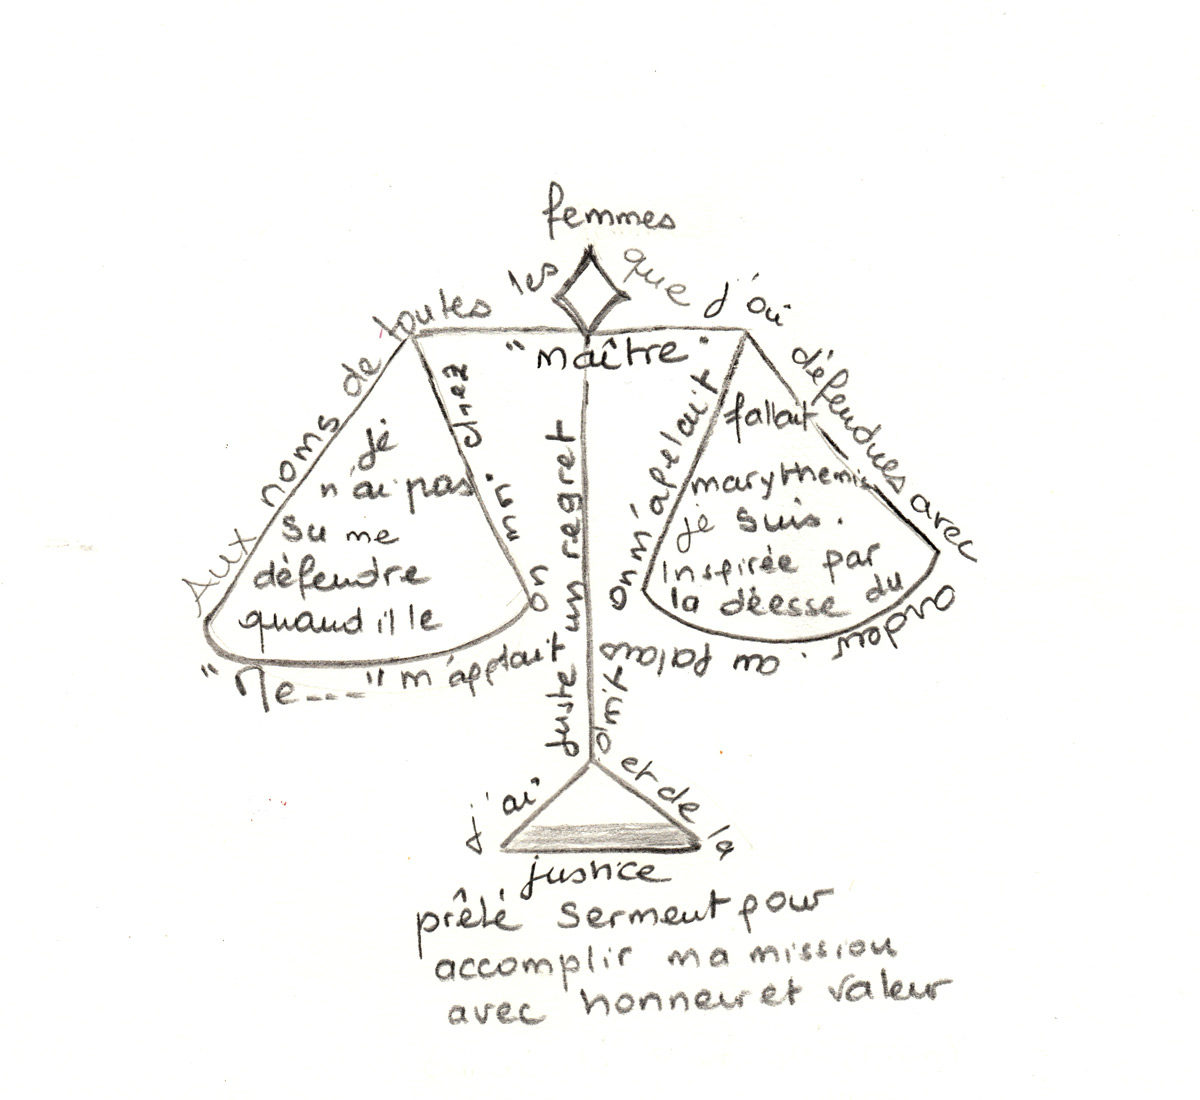 Aux noms de toutes les
femmes
que j'ai
défendues avec
ardeur. au palais
"maître"
on m'apelait
je
n'ai pas
su me
défendre
quand il le
fallait
"Me----" m'applait
on
chez
juste un regret
marythemis
je suis.
Inspirée par
la déesse du
droit
et de la
justice
j'ai
prêté serment pour
accomplir ma mission
avec honneur et valeur